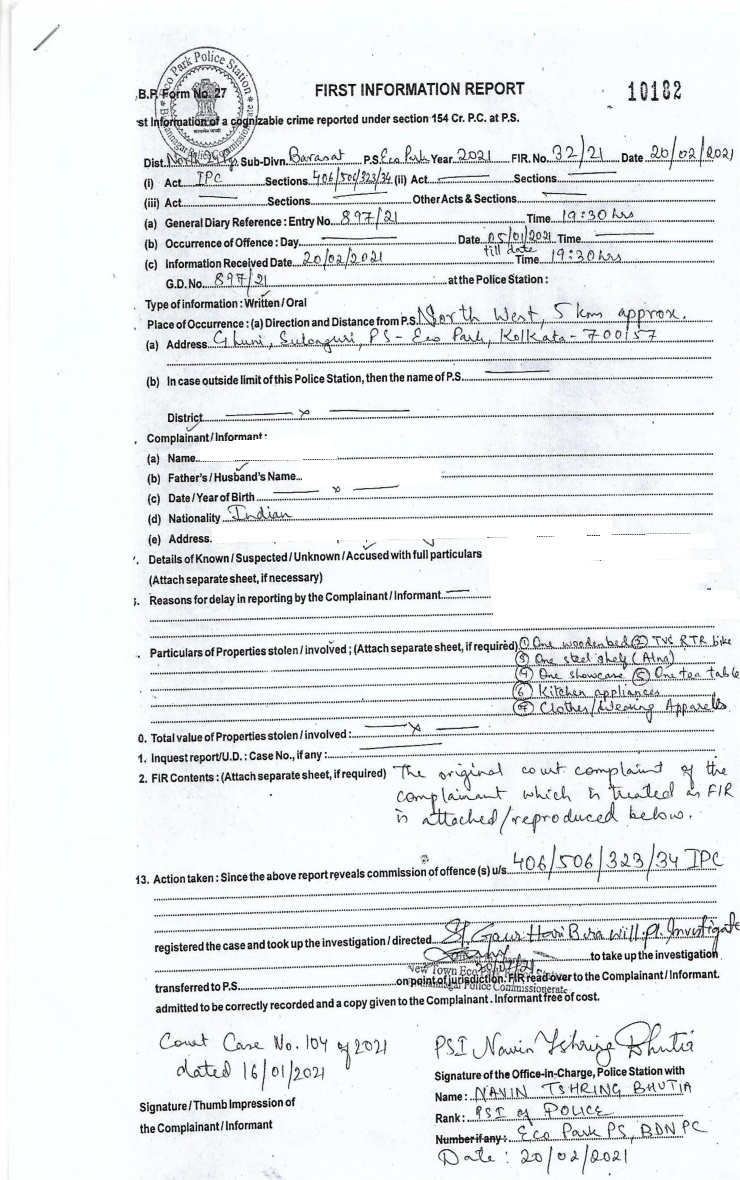 Eco Park Police Station
Bidhannagar Police Commissionerate
B.P. Form No. 27
FIRST INFORMATION REPORT
10182
st Information of a cognizable crime reported under section 154 Cr. P.C. at P.S.
Dist. North 24 Pgs. Sub-Divn. Barasat P.S. Eco Park Year 2021 FIR. No. 32/21 Date 20/02/2021
(i) Act IPC Sections 406/506/323/34 (ii) Act Sections
(iii) Act Sections Other Acts & Sections
(a) General Diary Reference : Entry No. 897/21 Time 19:30 hrs
(b) Occurrence of Offence : Day Date 05/01/2021 till date Time
(c) Information Received Date 20/02/2021 Time 19:30 hrs
G.D. No. 897/21 at the Police Station :
Type of information : Written / Oral
Place of Occurrence : (a) Direction and Distance from P.S. North West, 5 km approx.
(a) Address Ghuni, Sulanguri, PS - Eco Park, Kolkata - 700157
(b) In case outside limit of this Police Station, then the name of P.S.
District x
Complainant / Informant :
(a) Name
(b) Father's / Husband's Name
(c) Date / Year of Birth x
(d) Nationality Indian
(e) Address
Details of Known / Suspected / Unknown / Accused with full particulars
(Attach separate sheet, if necessary)
Reasons for delay in reporting by the Complainant / Informant
Particulars of Properties stolen / involved ; (Attach separate sheet, if required) ① One wooden bed ② TVS RTR bike
③ One steel shelf (Atna)
④ One showcase ⑤ One tea table
⑥ Kitchen appliances
⑦ Clothes/Wearing Apparels
0. Total value of Properties stolen / involved : x
1. Inquest report/U.D. : Case No., if any :
2. FIR Contents : (Attach separate sheet, if required) The original court complaint of the
complainant which is treated as FIR
is attached/reproduced below.
13. Action taken : Since the above report reveals commission of offence (s) u/s 406/506/323/34 IPC
registered the case and took up the investigation / directed SI Gour Hari Bera will pl. Investigate
to take up the investigation
New Town Eco
transferred to P.S. on point of jurisdiction. FIR read over to the Complainant / Informant.
Police Commissionerate
admitted to be correctly recorded and a copy given to the Complainant . Informant free of cost.
Court Case No. 104 of 2021
dated 16/01/2021
Signature / Thumb Impression of
the Complainant / Informant
PSI Navin Tshring Bhutia
Signature of the Office-in-Charge, Police Station with
Name : NAVIN TSHRING BHUTIA
Rank : PSI of POLICE
Number if any : Eco Park PS, BDNPC
Date : 20/02/2021